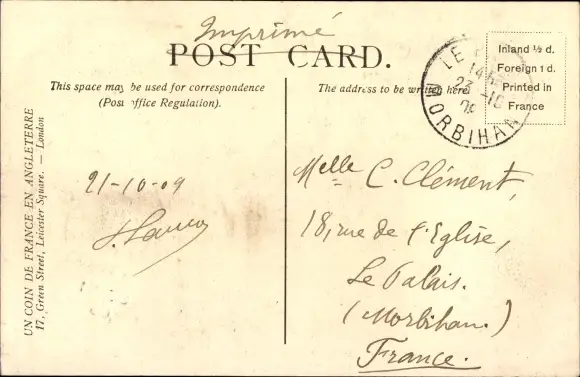 Imprimé
POST CARD.
This space may be used for correspondence
(Post Office Regulation).
The address to be written here.
Inland ½ d.
Foreign 1 d.
Printed in
France
LE
14
23 -10
09
MORBIHAN
UN COIN DE FRANCE EN ANGLETERRE
17, Green Street, Leicester Square. — London
21-10-09
Melle C. Clément,
18, rue de l'Eglise,
Le Palais.
(Morbihan.)
France.